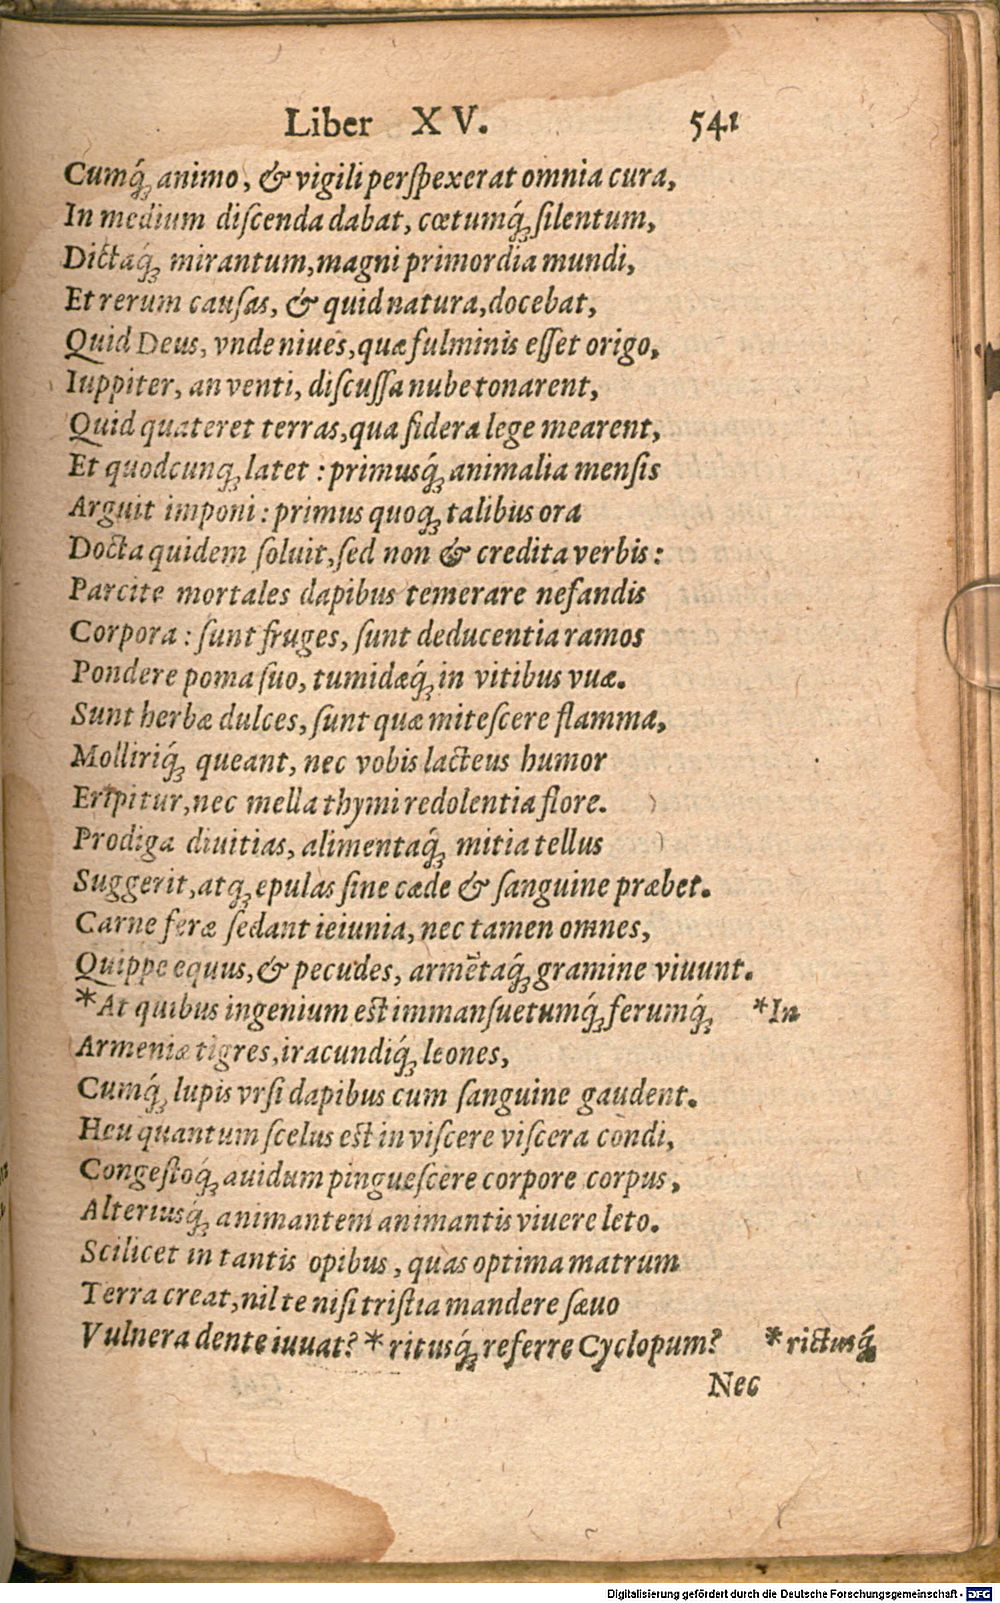 Liber XV. 541
Cumq́ꝫ animo, & vigili perſpexerat omnia cura,
In medium diſcenda dabat, cœtumq́ꝫ ſilentum,
Dictaq́ꝫ mirantum, magni primordia mundi,
Et rerum cauſas, & quid natura, docebat,
Quid Deus, vnde niues, quæ fulminis eſſet origo,
Iuppiter, an venti, diſcuſſa nube tonarent,
Quid quateret terras, qua ſidera lege mearent,
Et quodcunqꝫ latet : primusq́ꝫ animalia menſis
Arguit imponi : primus quoqꝫ talibus ora
Docta quidem ſoluit, ſed non & credita verbis :
Parcite mortales dapibus temerare nefandis
Corpora : ſunt fruges, ſunt deducentia ramos
Pondere poma ſuo, tumidæq́ꝫ in vitibus vuæ.
Sunt herbæ dulces, ſunt quæ miteſcere flamma,
Molliriq́ꝫ queant, nec vobis lacteus humor
Eripitur, nec mella thymi redolentia flore.
Prodiga diuitias, alimentaq́ꝫ mitia tellus
Suggerit, atqꝫ epulas ſine cæde & ſanguine præbet.
Carne feræ ſedant ieiunia, nec tamen omnes,
Quippe equus, & pecudes, armẽtaq́ꝫ gramine viuunt.
*At quibus ingenium eſt immanſuetumq́ꝫ ferumq́ꝫ *In
Armeniæ tigres, iracundiq́ꝫ leones,
Cumq́ꝫ lupis vrſi dapibus cum ſanguine gaudent.
Heu quantum ſcelus eſt in viſcere viſcera condi,
Congeſtoq́ꝫ auidum pingueſcere corpore corpus,
Alteriusq́ꝫ animantem animantis viuere leto.
Scilicet in tantis opibus, quas optima matrum
Terra creat, nil te niſi triſtia mandere ſæuo
Vulnera dente iuuat? * ritusq́ꝫ referre Cyclopum? * rictusq́ꝫ
Nec
Digitalisierung gefördert durch die Deutsche Forschungsgemeinschaft - DFG